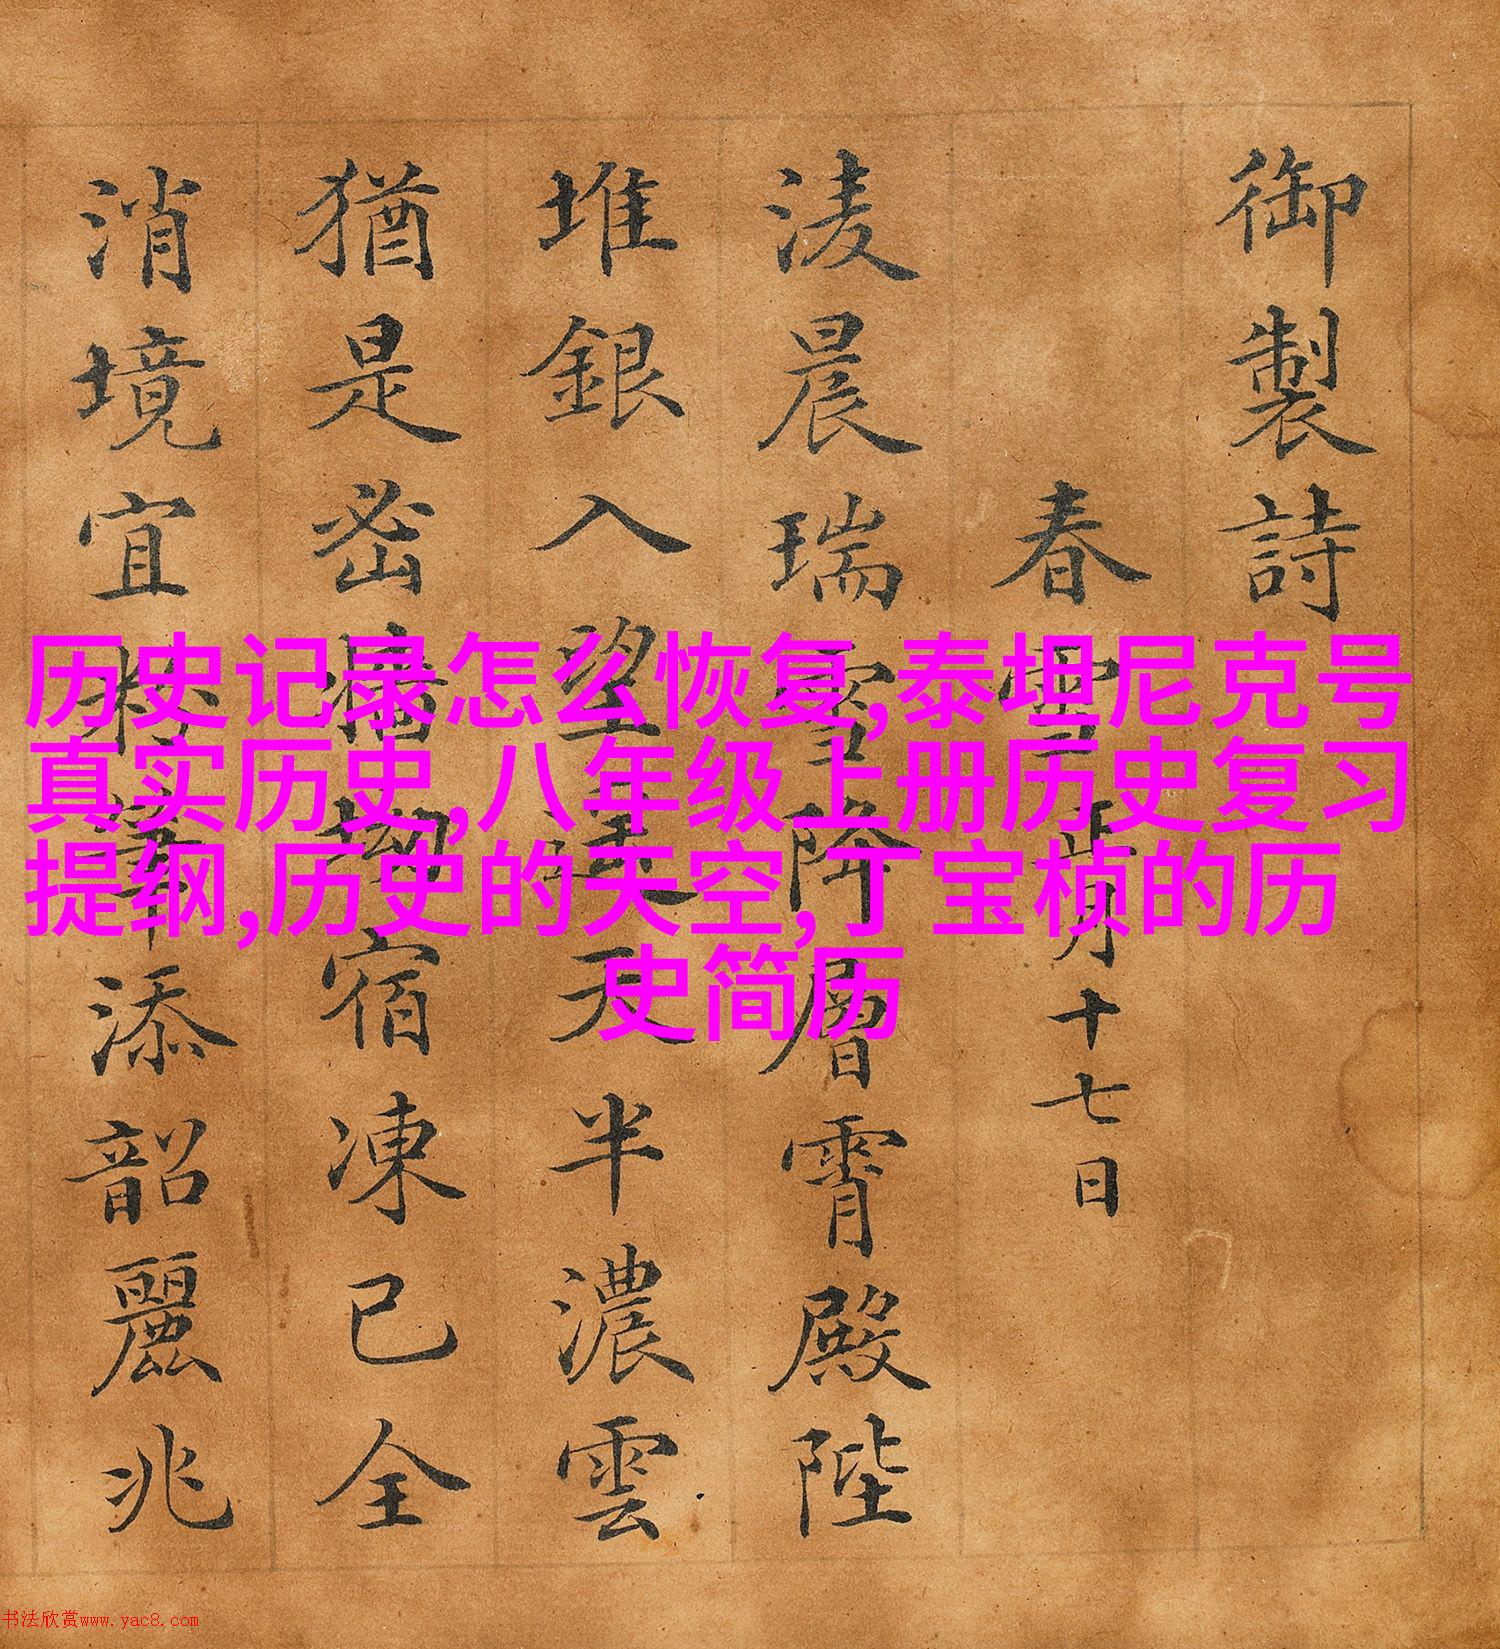 御製詩
春雪 正月十七日
淩晨瑞雪降層霄殿陛
堆銀入望遙天半濃雲
猶是密宿凍已全
消境宜添韶麗兆
历史记录怎么恢复,泰坦尼克号
真实历史,八年级上册历史复习
提纲,历史的天空,丁宝桢的历
史简历
书法欣赏www.yac8.com